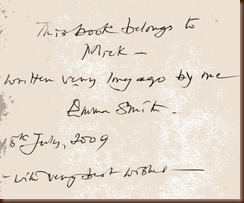 This book belongs to
Mick —
written very long ago by me
Emma Smith.
5th July, 2009
– with very best wishes —